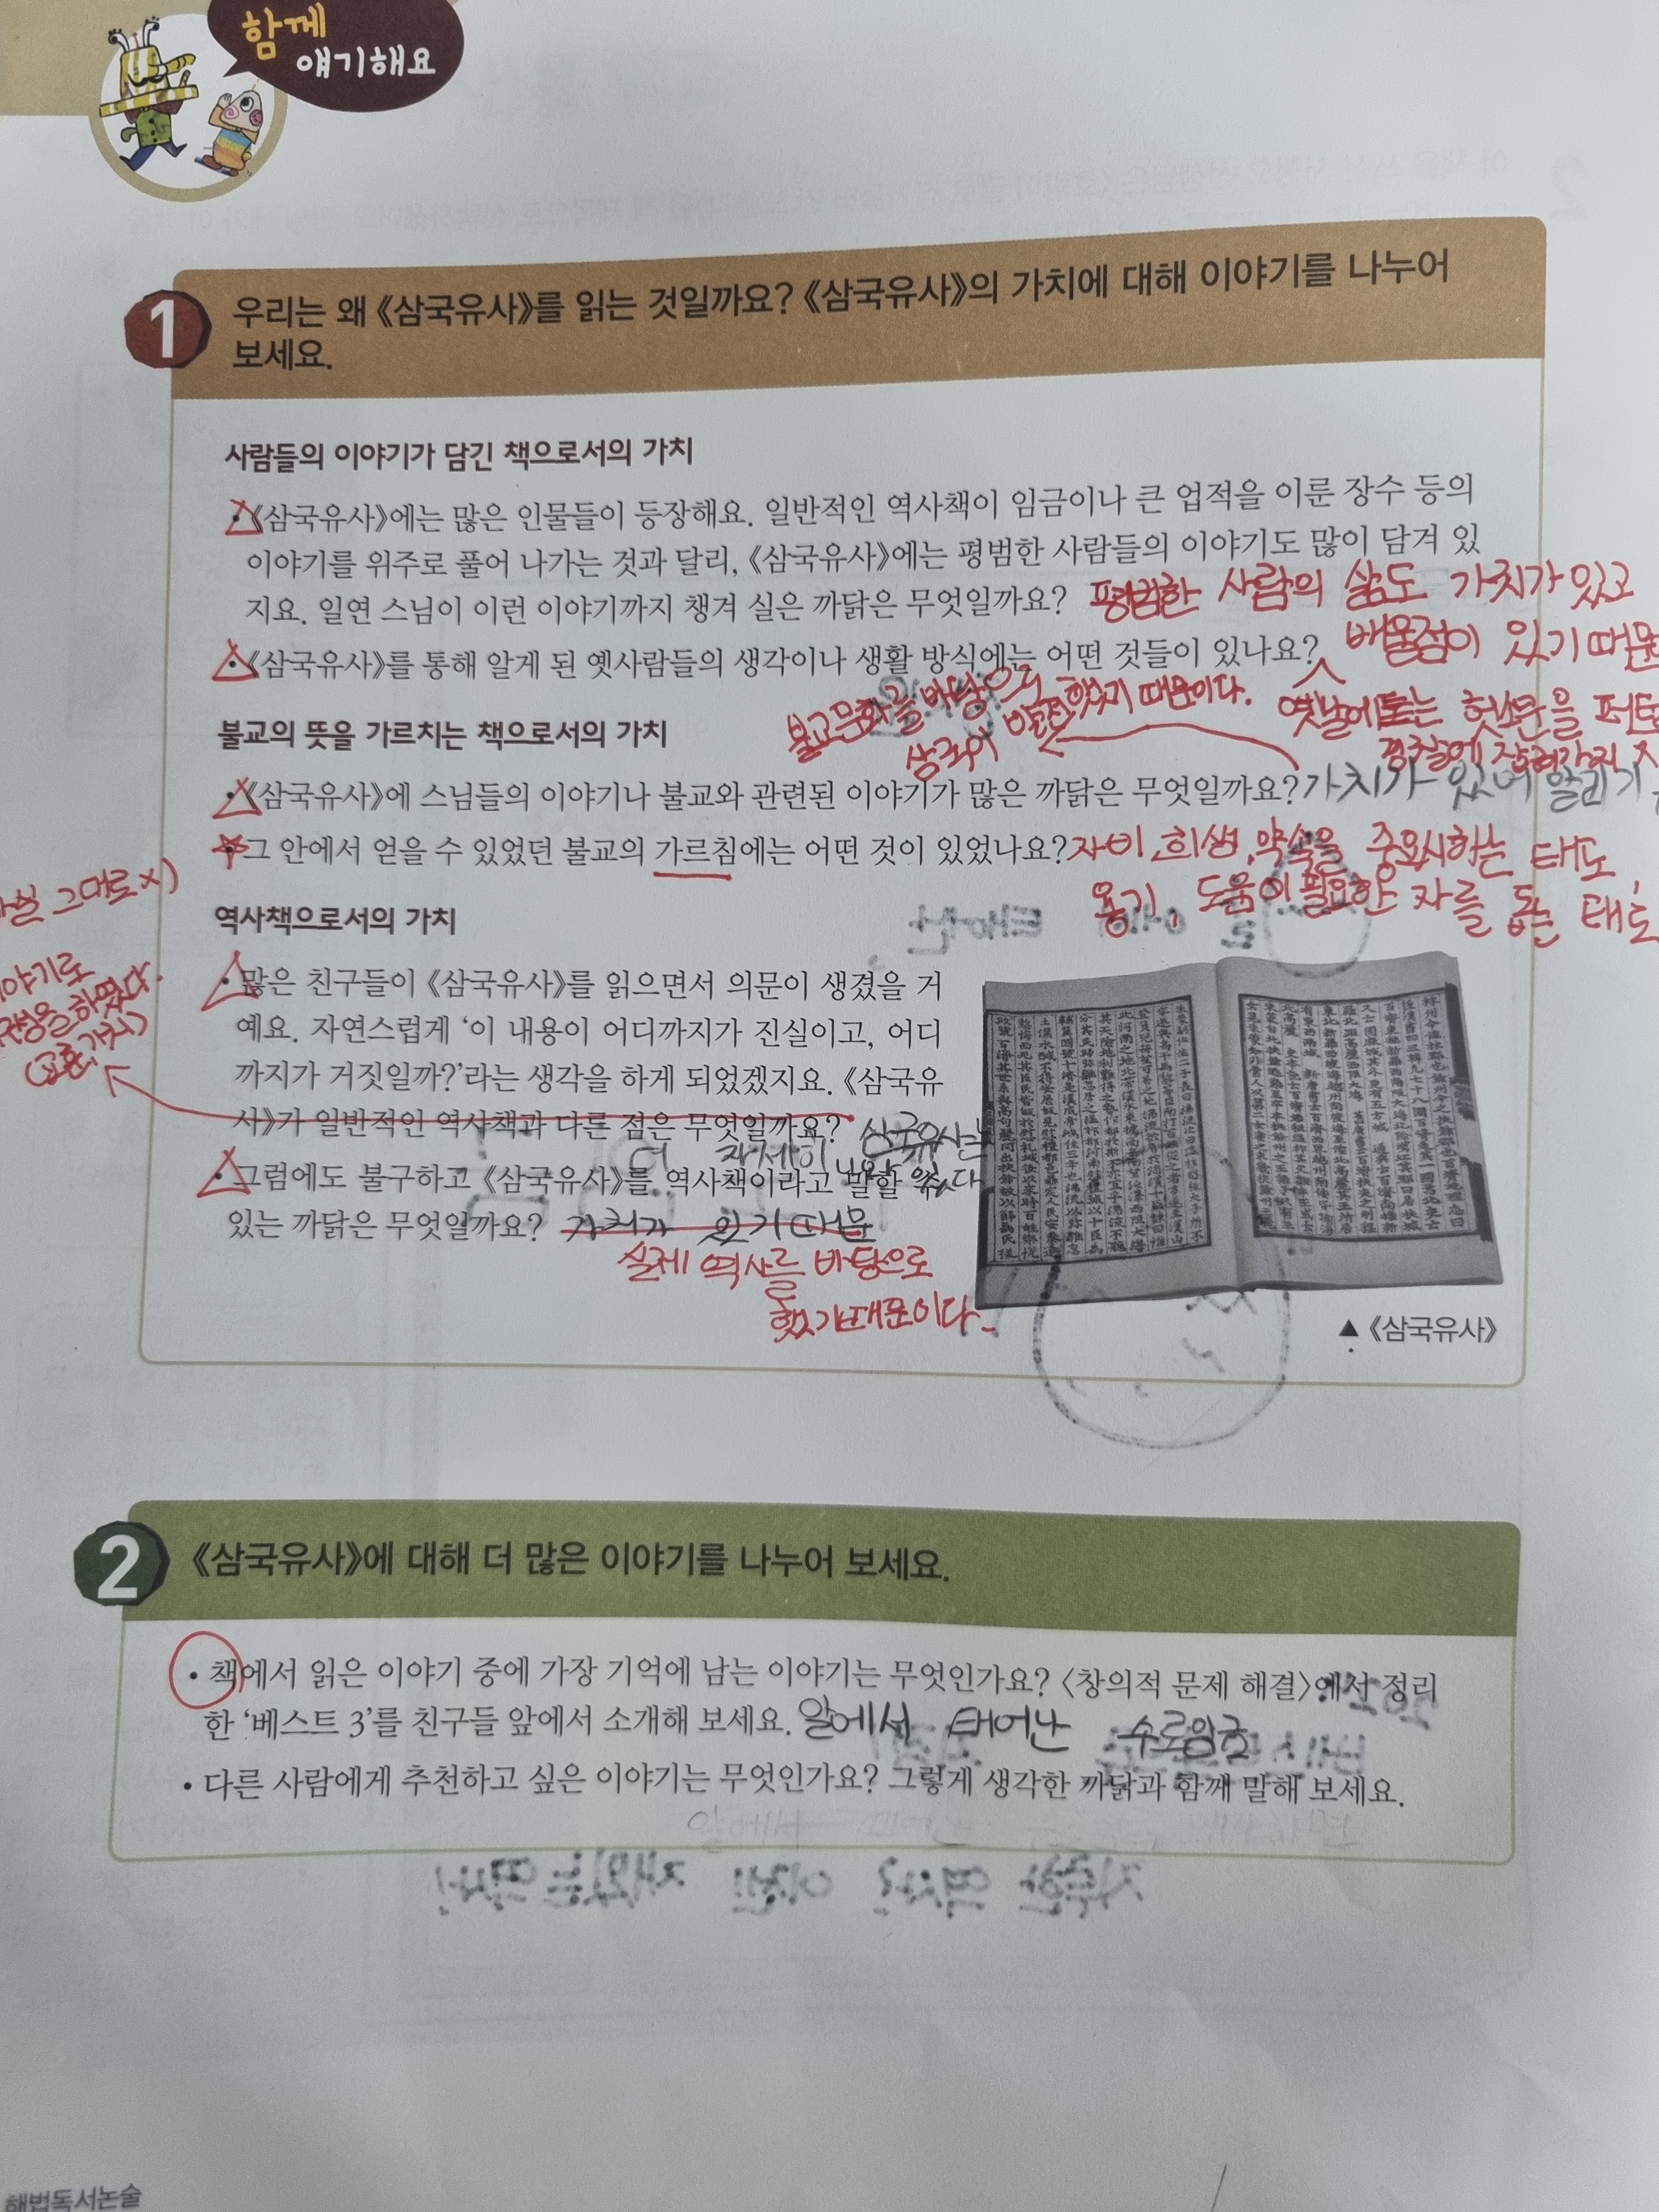 함께
얘기해요
1 우리는 왜 《삼국유사》를 읽는 것일까요? 《삼국유사》의 가치에 대해 이야기를 나누어
보세요.
사람들의 이야기가 담긴 책으로서의 가치
• 《삼국유사》에는 많은 인물들이 등장해요. 일반적인 역사책이 임금이나 큰 업적을 이룬 장수 등의
이야기를 위주로 풀어 나가는 것과 달리, 《삼국유사》에는 평범한 사람들의 이야기도 많이 담겨 있
지요. 일연 스님이 이런 이야기까지 챙겨 실은 까닭은 무엇일까요? 평범한 사람의 삶도 가치가 있고
배울점이 있기 때문
• 《삼국유사》를 통해 알게 된 옛사람들의 생각이나 생활 방식에는 어떤 것들이 있나요?
옛날에도는 헛소문을
불교문화를 바탕으로
삼국이 발전했기 때문이다.
불교의 뜻을 가르치는 책으로서의 가치
• 《삼국유사》에 스님들의 이야기나 불교와 관련된 이야기가 많은 까닭은 무엇일까요? 가치가 있어 알리기
• 그 안에서 얻을 수 있었던 불교의 가르침에는 어떤 것이 있었나요? 자비, 희생, 약속을 중요시하는 태도,
용기, 도움이 필요한 자를 돕는 태도
역사책으로서의 가치
• 많은 친구들이 《삼국유사》를 읽으면서 의문이 생겼을 거
예요. 자연스럽게 ‘이 내용이 어디까지가 진실이고, 어디
까지가 거짓일까?’라는 생각을 하게 되었겠지요. 《삼국유
사》가 일반적인 역사책과 다른 점은 무엇일까요? 삼국유사는
더 자세히
그대로 x)
(교훈, 가치)
• 그럼에도 불구하고 《삼국유사》를 역사책이라고 말할 수
있는 까닭은 무엇일까요? 가치가 있기 때문
실제 역사를 바탕으로
했기때문이다.
▲《삼국유사》
2 《삼국유사》에 대해 더 많은 이야기를 나누어 보세요.
• 책에서 읽은 이야기 중에 가장 기억에 남는 이야기는 무엇인가요? 〈창의적 문제 해결〉에서 정리
한 ‘베스트 3’를 친구들 앞에서 소개해 보세요. 알에서 태어난 수로임금
• 다른 사람에게 추천하고 싶은 이야기는 무엇인가요? 그렇게 생각한 까닭과 함께 말해 보세요.
해법독서논술